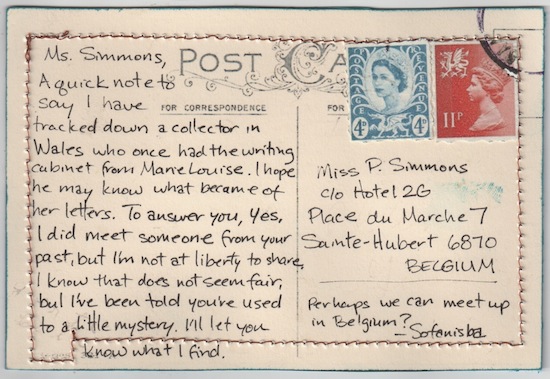 Ms. Simmons,
POST CA
A quick note to
say I have
FOR CORRESPONDENCE
FOR
tracked down a collector in
Wales who once had the writing
cabinet from Marie Louise. I hope
he may know what became of
her letters. To answer you, Yes,
I did meet someone from your
past, but I'm not at liberty to share,
I know that does not seem fair,
but I've been told you're used
to a little mystery. I'll let you
know what I find.
POSTAGE
4D
4D
11P
Miss P. Simmons
c/o Hotel 2G
Place du Marche 7
Sainte-Hubert 6870
BELGIUM
Perhaps we can meet up
in Belgium?
-Sofonisba